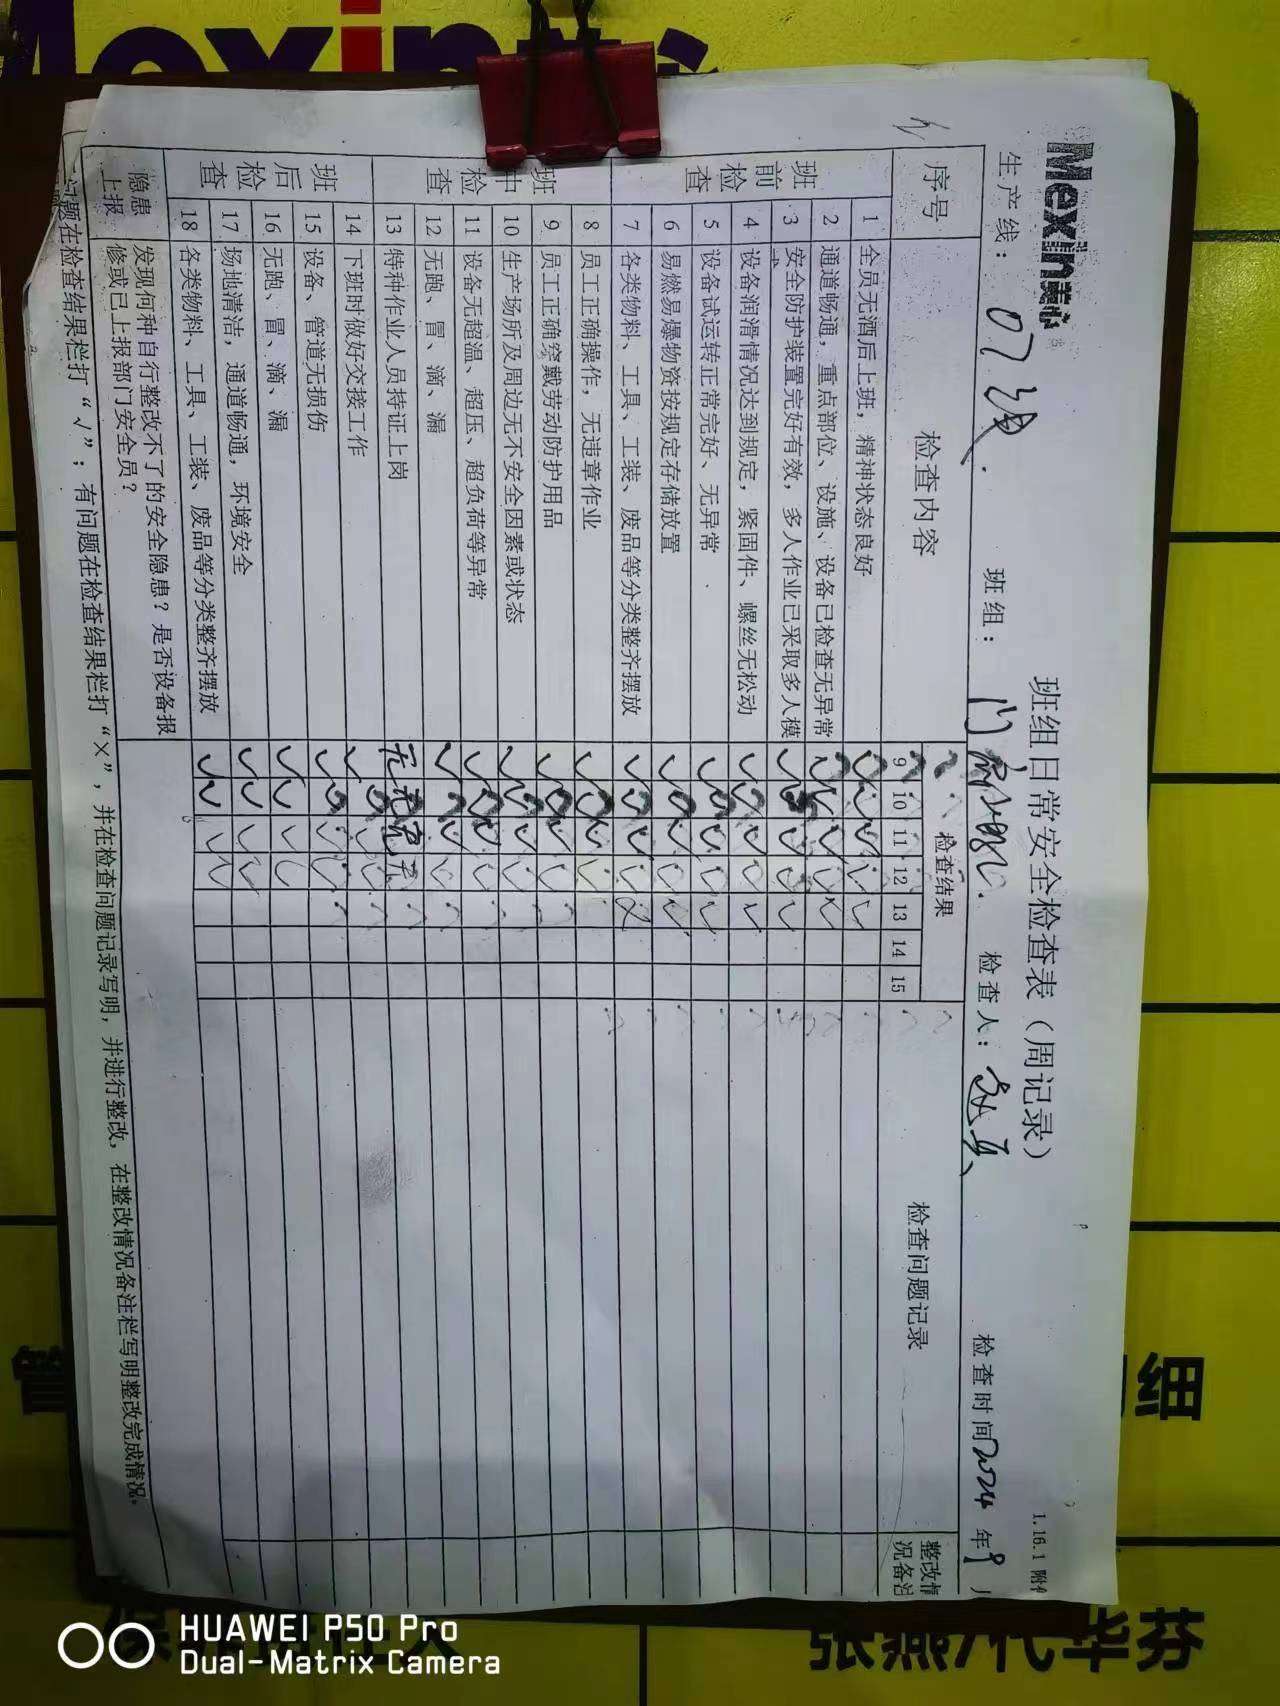 Mexin美心
1.16.1 附件
班组日常安全检查表（周记录）
生产线： 07线. 班组： 检查人： 检查时间2024 年9月
序号 检查内容 检查结果 检查问题记录 整改情况备注
9 10 11 12 13 14 15
班前检查
1 全员无酒后上班，精神状态良好 √ √ √ √ √
2 通道畅通，重点部位、设施、设备已检查无异常 √ √ √ √ √
3 安全防护装置完好有效，多人作业已采取多人模式 √ √ √ √ √
4 设备润滑情况达到规定，紧固件、螺丝无松动 √ √ √ √ √
5 设备试运转正常完好、无异常 √ √ √ √ √
6 易燃易爆物资按规定存储放置 √ √ √ √ √
7 各类物料、工具、工装、废品等分类整齐摆放 √ √ √ √ √
班中检查
8 员工正确操作，无违章作业 √ √ √ √
9 员工正确穿戴劳动防护用品 √ √ √ √
10 生产场所及周边无不安全因素或状态 √ √ √ √
11 设备无超温、超压、超负荷等异常 √ √ √ √
12 无跑、冒、滴、漏 √ √ √ √
13 特种作业人员持证上岗 无 无 无 无
班后检查
14 下班时做好交接工作 √ √ √ √
15 设备、管道无损伤 √ √ √ √
16 无跑、冒、滴、漏 √ √ √ √
17 场地清洁，通道畅通，环境安全 √ √ √ √
18 各类物料、工具、工装、废品等分类整齐摆放 √ √ √ √
隐患上报 发现何种自行整改不了的安全隐患？是否设备报
修或已上报部门安全员？
问题在检查结果栏打“√”；有问题在检查结果栏打“×”，并在检查问题记录写明，并进行整改，在整改情况备注栏写明整改完成情况。
Mexin美心
细
张燕/代华芬
HUAWEI P50 Pro
Dual-Matrix Camera